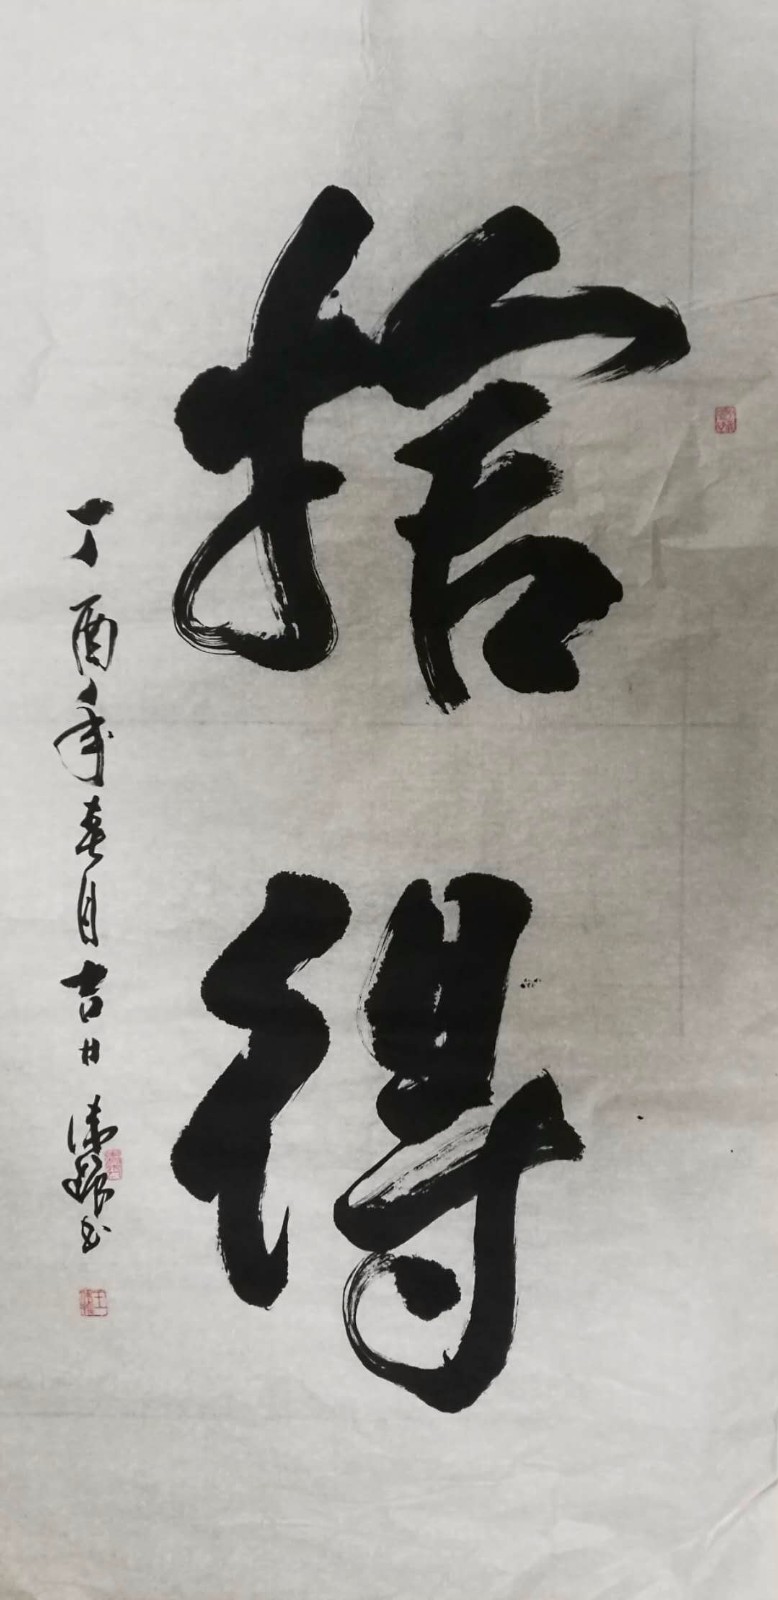 捨得
丁酉年春月吉日
书